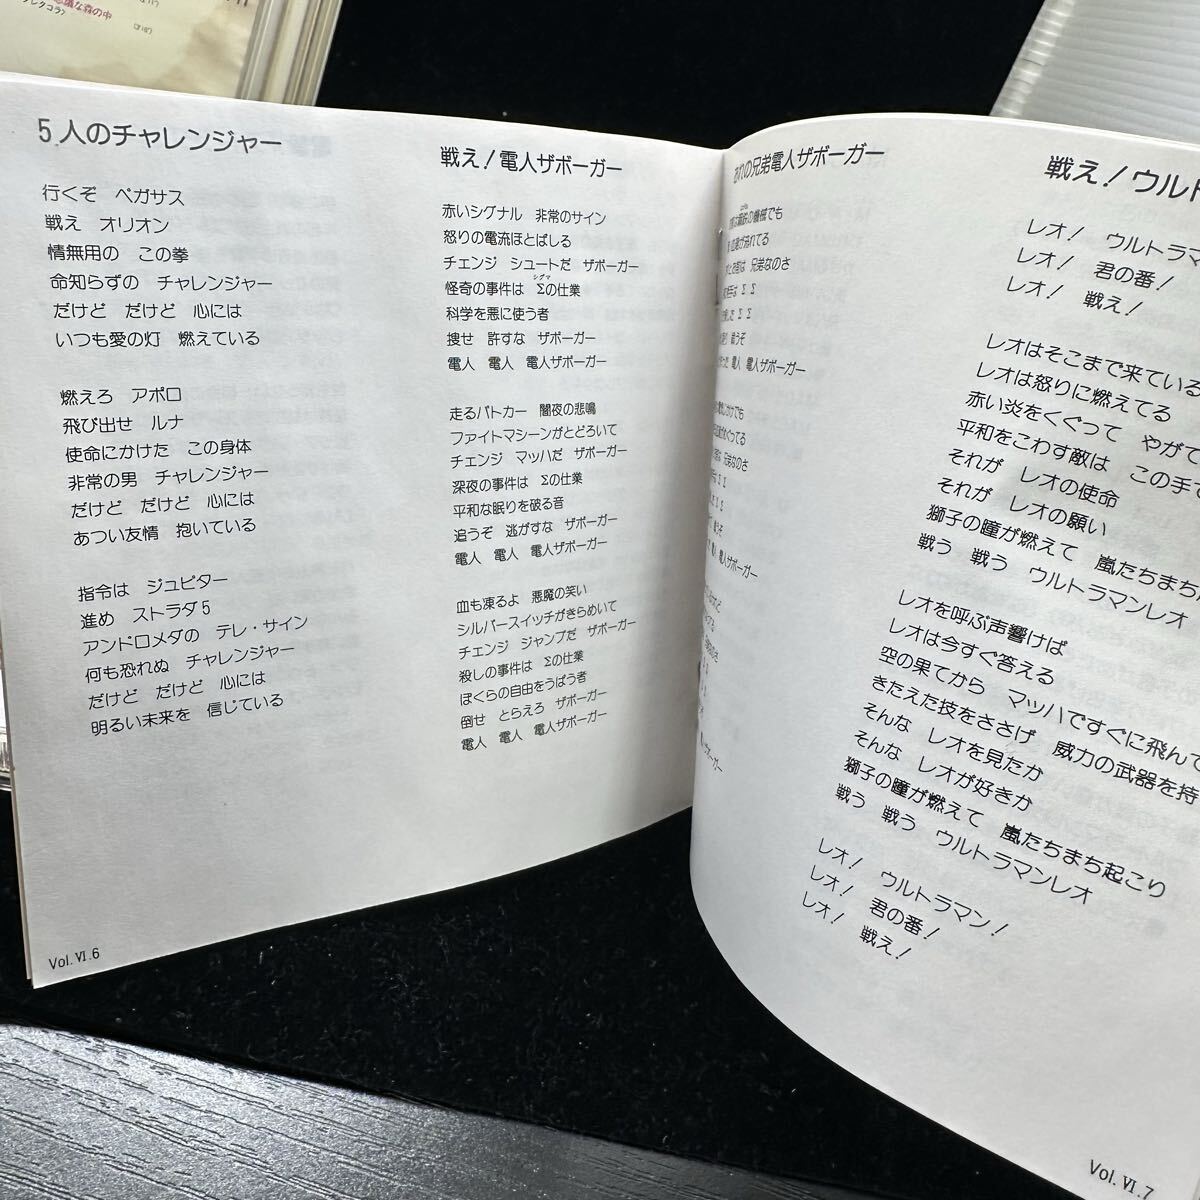 不思議な森の中
5人のチャレンジャー
行くぞ ペガサス
戦え オリオン
情無用の この拳
命知らずの チャレンジャー
だけど だけど 心には
いつも愛の灯 燃えている
燃えろ アポロ
飛び出せ ルナ
使命にかけた この身体
非常の男 チャレンジャー
だけど だけど 心には
あつい友情 抱いている
指令は ジュピター
進め ストラダ5
アンドロメダの テレ・サイン
何も恐れぬ チャレンジャー
だけど だけど 心には
明るい未来を 信じている
Vol.Ⅵ.6
戦え!電人ザボーガー
赤いシグナル 非常のサイン
怒りの電流ほとばしる
チェンジ シュートだ ザボーガー
シグマ
怪奇の事件は Σの仕業
科学を悪に使う者
捜せ 許すな ザボーガー
電人 電人 電人ザボーガー
走るパトカー 闇夜の悲鳴
ファイトマシーンがとどろいて
チェンジ マッハだ ザボーガー
深夜の事件は Σの仕業
平和な眠りを破る音
追うぞ 逃がすな ザボーガー
電人 電人 電人ザボーガー
血も凍るよ 悪魔の笑い
シルバースイッチがきらめいて
チェンジ ジャンプだ ザボーガー
殺しの事件は Σの仕業
ぼくらの自由をうばう者
倒せ とらえろ ザボーガー
電人 電人 電人ザボーガー
の兄弟電人ザボーガー
の機械でも
が流れてる
は 兄弟なのさ
Σ Σ
Σ Σ
追うぞ
電人 電人ザボーガー
でも
てる
兄弟なのさ
Σ Σ
Σ Σ
追うぞ
電人ザボーガー
戦え!ウルト
レオ! ウルトラマ
レオ! 君の番!
レオ! 戦え!
レオはそこまで来ている
レオは怒りに燃えてる
赤い炎をくぐって やがて
平和をこわす敵は この手で
それが レオの使命
それが レオの願い
獅子の瞳が燃えて 嵐たちまち
戦う 戦う ウルトラマンレオ
レオを呼ぶ声響けば
レオは今すぐ答える
空の果てから マッハですぐに飛んで
きたえた技をささげ 威力の武器を持
そんな レオを見たか
そんな レオが好きか
獅子の瞳が燃えて 嵐たちまち起こり
戦う 戦う ウルトラマンレオ
レオ! ウルトラマン!
レオ! 君の番!
レオ! 戦え!
Vol.Ⅵ.7